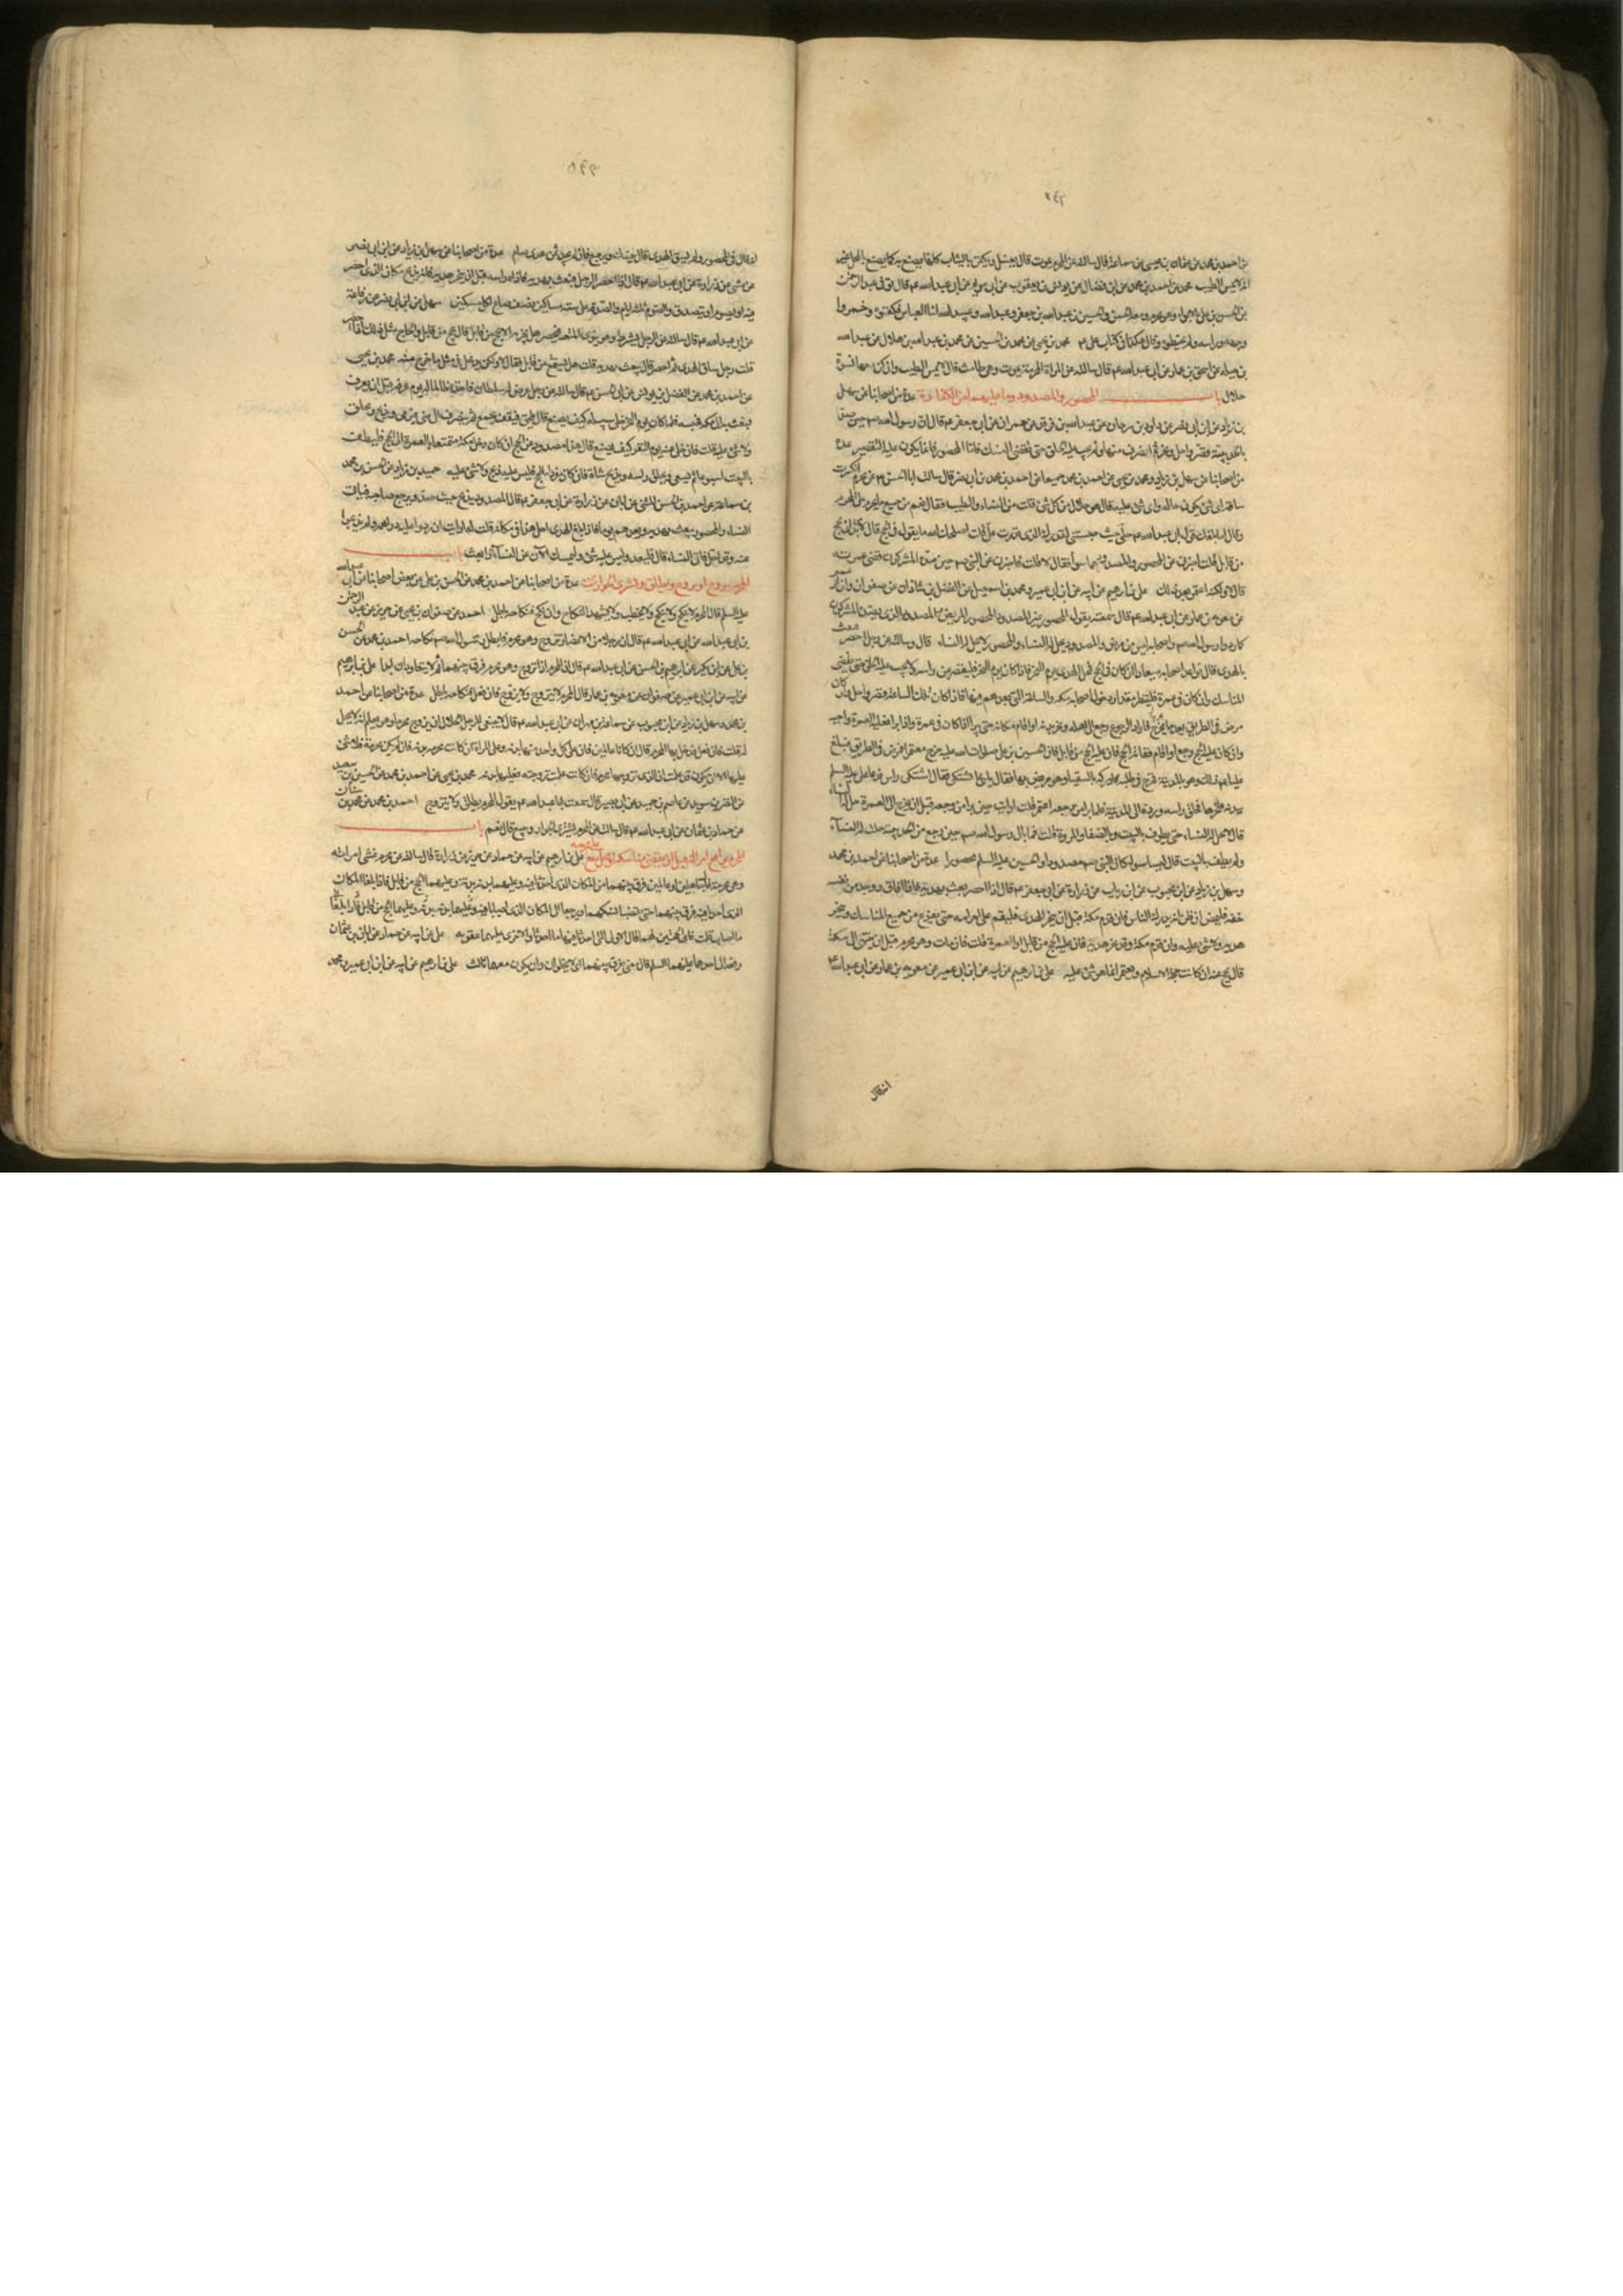 عن احمد بن محمد عن عثمان بن عيسى عن سماعة قال سالته عن المحرم يموت قال يغسل ويكفن بالثياب كلها يصنع به كما يصنع بالمحل غير
انه لا يمس الطيب محمد عن احمد بن محمد عن ابن فضال عن يونس بن يعقوب عن ابى مريم عن ابى عبد الله ع م قال توفى عبد الرحمن
بن الحسن بن على بالابواء وهو محرم ومعه الحسن والحسين بن عبد الله بن جعفر وعبد الله وعبيد الله ابنا العباس فكفنوه وخمروا
وجهه وراسه ولم يحنطوه وقال هكذا فى كتاب على ع م محمد بن يحيى عن محمد بن الحسين عن محمد بن عبد الله بن هلال عن عبد الله
بن جبله عن اسحق بن عمار عن ابى عبد الله ع م قال سالته عن المراة المحرمة تموت وهى طامث قال لا تمس الطيب وان كن معها نسوة
حلال باب المحصور والمصدود وما عليهما من الكفارة عدة من اصحابنا عن سهل
بن زياد عن ابن ابى نصر عن داود بن سرحان عن عبد الله بن فرقد عن حمران عن ابى جعفر ع م قال ان رسول الله ص م حين صد
بالحديبية قصر واحل ونحر ثم انصرف منها ولم يجب عليه الحلق حتى يقضى النسك فاما المحصور فانما يكون عليه التقصير عدة
من اصحابنا عن سهل بن زياد ومحمد بن يحيى عن احمد بن محمد جميعا عن احمد بن محمد بن ابى نصر قال سالت ابا الحسن ع م عن محرم انكسرت
ساقه اى شئ يكون حاله واى شئ عليه قال هو حلال من كل شئ قلت من النساء والطيب فقال نعم من جميع ما يحرم على المحرم
وقال اما بلغك قول ابى عبد الله ع م حلنى حيث حبستنى لقدرك الذى قدرت على قلت اصلحك الله ما يقول فى الحج قال لابد ان يحج
من قابل قلت اخبرنى عن المحصور والمصدود هما سوا فقال لا قلت فاخبرنى عن النبى ص م حين صده المشركون قضى عمرته
قال لا ولكنه اعتمر بعد ذلك على بن ابرهيم عن ابيه عن ابن ابى عمير ومحمد بن اسمعيل عن الفضل بن شاذان عن صفوان وابن ابى عمير
عن معويه بن عمار عن ابى عبد الله ع م قال سمعته يقول المحصور غير المصدود المحصور المريض والمصدود الذى يصده المشركون
كما ردوا رسول الله ص م واصحابه ليس من مرض والمصدود يحل له النساء والمحصور لا يحل له النساء قال وسالته عن رجل احصر فبعث
بالهدى قال يواعد اصحابه ميعادا ان كان فى الحج فمحل الهدى يوم النحر فاذا كان يوم النحر فليقصر من راسه ولا يجب عليه الحلق حتى يقضى
المناسك وان كان فى عمرة فلينظر مقدار دخول اصحابه مكه والساعة التى يعدهم فيها فاذا كان تلك الساعة قصر واحل وان كان
مرض فى الطريق بعد ما يخرج فاراد الرجوع رجع الى اهله ونحر بدنه او اقام مكانه حتى يبرا اذا كان فى عمرة واذا برا فعليه العمرة واجبه
وان كان عليه الحج رجع او اقام ففاته الحج فان عليه الحج من قابل فان الحسين بن على صلوات الله عليه خرج معتمرا فمرض فى الطريق فبلغ
عليا ع م ذلك وهو بالمدينة فخرج فى طلبه فادركه بالسقيا وهو مريض بها فقال يا بنى ما تشتكى فقال اشتكى راسى فدعا على عليه السلم
ببدنه فنحرها فحلق راسه ورده الى المدينة فلما برا من وجعه اعتمر قلت ارايت حين برا من وجعه قبل ان يخرج الى العمرة حل له النساء
قال لا تحل له النساء حتى يطوف بالبيت وبالصفا والمروة قلت فما بال رسول الله ص م حين رجع من الحديبيه حلت له النساء
ولم يطف بالبيت قال ليسا سوا كان النبى ص م مصدودا والحسين عليه السلم محصورا عدة من اصحابنا عن احمد بن محمد
وسهل بن زياد عن ابن محبوب عن ابن رياب عن زرارة عن ابى جعفر ع م قال اذا احصر بعث بهديه فاذا افاق ووجد من نفسه
خفة فليمض ان ظن انه يدرك الناس فان قدم مكة قبل ان ينحر الهدى فليقم على احرامه حتى يفرغ من جميع المناسك وينحر
هديه ولا شئ عليه وان قدم مكة وقد نحر هديه فان عليه الحج من قابل او العمرة قلت فان مات وهو محرم قبل ان ينتهى الى مكة
قال يحج عنه ان كانت حجة الاسلام ويعتمر انما هو شئ عليه على بن ابرهيم عن ابيه عن ابن ابى عمير عن معويه بن عمار عن ابى عبد الله ع م
انه قال
انه قال فى المحصور ولم يسق الهدى قال ينسك ويرجع فان لم يجد ثمن هدى صام عدة من اصحابنا عن سهل بن زياد عن ابن ابى نصر
عن مثنى عن زرارة عن ابى عبد الله ع م قال اذا احصر الرجل فبعث بهديه فاذاه راسه قبل ان ينحر هديه فانه يذبح مكان الذى احصر
فيه او يصوم او يتصدق والصوم ثلثة ايام والصدقة على ستة مساكين نصف صاع لكل مسكين سهل عن ابن ابى نصر عن رفاعة
عن ابى عبد الله ع م قال سالته عن الرجل يشترط وهو ينوى المتعه فيحصر هل يجزيه الا يحج من قابل قال يحج من قابل والحاج مثل ذلك اذا احصر
قلت رجل ساق الهدى ثم احصر قال يبعث بهديه قلت هل يستمتع من قابل فقال لا ولكن يدخل فى مثل ما خرج منه محمد بن يحيى
عن احمد بن محمد عن الفضل بن يونس عن ابى الحسن ع م قال سالته عن رجل عرض له سلطان فاخذه ظالما له يوم عرفه قبل ان يعرف
فبعث به الى مكه فحبسه فلما كان يوم النحر خلى سبيله كيف يصنع قال يلحق فيقف بجمع ثم ينصرف الى منى فيرمى ويذبح ويحلق
ولا شئ عليه قلت فان خلى عنه يوم النفر كيف يصنع قال هذا مصدود عن الحج ان كان دخل مكة متمتعا بالعمرة الى الحج فليطف
بالبيت اسبوعا ثم يسعى ويحلق راسه ويذبح شاة فان كان مفردا للحج فليس عليه ذبح ولا شئ عليه حميد بن زياد عن الحسن بن محمد
بن سماعة عن احمد بن الحسن الميثمى عن ابان عن زرارة عن ابى جعفر ع م قال المصدود يذبح حيث صد ويرجع صاحبه فياتى
النساء والمحصور يبعث بهديه ويعدهم يوما فاذا بلغ الهدى احل هذا فى مكانه قلت له ارايت ان ردوا عليه دراهمه ولم يذبحوا
عنه وقد احل فاتى النساء قال فليعد وليس عليه شئ وليمسك الان عن النساء اذا بعث باب
المحرم يتزوج او يزوج ويطلق ويشترى الجوارى عدة من اصحابنا عن احمد بن محمد عن الحسن بن على عن بعض اصحابنا عن ابى عبد الله
عليه السلم قال المحرم لا ينكح ولا ينكح ولا يخطب ولا يشهد النكاح وان نكح فنكاحه باطل احمد عن صفوان بن يحيى عن حريز عن عبد الرحمن
بن ابى عبد الله عن ابى عبد الله ع م قال ان رجلا من الانصار تزوج وهو محرم فابطل رسول الله ص م نكاحه احمد بن محمد عن الحسن
بن على عن ابن بكير عن ابرهيم بن الحسن عن ابى عبد الله ع م قال ان المحرم اذا تزوج وهو محرم فرق بينهما ثم لا يتعاودان ابدا على بن ابرهيم
عن ابيه عن ابن ابى عمير عن صفوان عن معويه بن عمار قال المحرم لا يتزوج ولا يزوج فان فعل فنكاحه باطل عدة من اصحابنا عن احمد
بن محمد وسهل بن زياد عن ابن محبوب عن سماعة بن مهران عن ابى عبد الله ع م قال لا ينبغى للرجل الحلال ان يزوج محرما وهو يعلم انه لا يحل
له قلت فان فعل فدخل بها المحرم قال ان كانا عالمين فان على كل واحد منهما بدنه وعلى المراة ان كانت محرمه بدنه فان لم تكن محرمة فلا شئ
عليها الا ان تكون قد علمت ان الذى تزوجها محرم فان كانت علمت ثم تزوجته فعليها بدنه محمد بن يحيى عن احمد بن محمد عن الحسين بن سعيد
عن النضر بن سويد عن عاصم بن حميد عن ابى بصير قال سمعت ابا عبد الله ع م يقول المحرم يطلق ولا يتزوج احمد بن محمد عن
عن حماد بن عثمان عن ابى عبد الله ع م قال سالته عن المحرم يشترى الجوارى ويبيع قال نعم باب
المحرم يواقع امراته قبل ان يقضى مناسكه او محل يقع على محرمه على بن ابرهيم عن ابيه عن حماد عن حريز عن زرارة قال سالته عن محرم غشى امراته
وهى محرمة
الذى احدثا فيه فرق بينهما حتى يقضيا نسكهما ويرجعا الى المكان الذى اصابا فيه وعليها بدنه وعليهما الحج من قابل فاذا بلغا
ما اصابا قلت فاى الحجتين لهما قال الاولى التى احدثا فيها ما احدثا والاخرى عليهما عقوبه على عن ابيه عن حماد عن ابان بن عثمان
رفعه الى احدهما عليهما السلم قال معنى يفرق بينهما اى لا يخلوان وان يكون معهما ثالث على بن ابرهيم عن ابيه عن ابن ابى عمير ومحمد